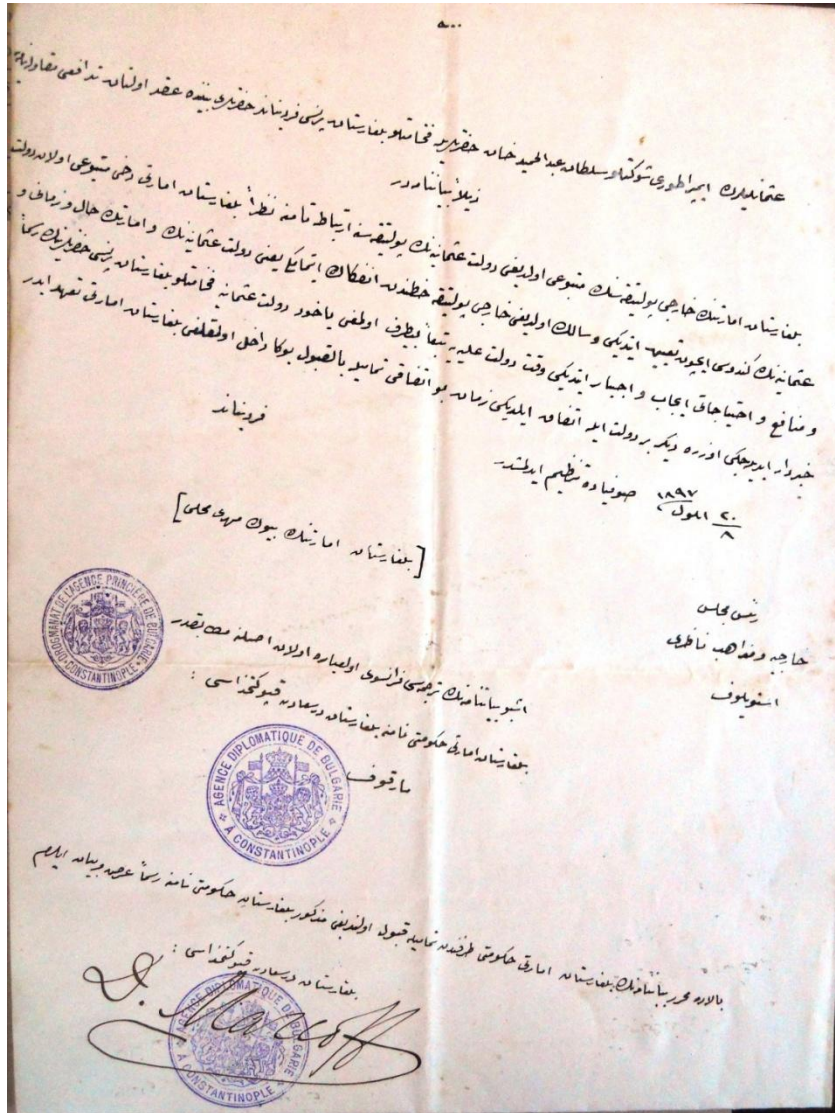 عثمانليلرك ايمپراطورى شوكتلو سلطان عبدالحميد خان حضرتلريله فخامتلو بلغارستان پرنسى فرديناند حضرتلرى بيننده عقد اولنان تدافعى
ذيلاً بياننامه در
بلغارستان امارتنك خارجى پوليتقه سنك متبوعى اولديغى دولت عثمانيه نك پوليتقه سنه ارتباط تامنه نظراً بلغارستان امارتى دخى متبوعى اولان دولت
عثمانيه نك كندوسى ايچون تعيين ايتديكى وسالك اولديغى خارجى پوليتقه خطندن انفكاك ايتمامك يعنى دولت عثمانيه نك و امارتك حال و زمانى و
و منافع و احتياجاتى ايجاب و اجبار ايتديكى وقت دولت عليه يه تبعاً بيطرف اولمق ياخود دولت عثمانيه فخامتلو بلغارستان پرنسى حضرتلرينك رسماً
خبردار ايديله جكى اوزره ديكر بر دولت ايله اتفاق ايلديكى زمان بو اتفاقى تماميله بالقبول بوكا داخل اولمقلغى بلغارستان امارتى تعهد ايدر
فرديناند
٢٠/٨ ايلول ١٨٩٧ صوفياده تنظيم ايدلمشدر
[بلغارستان امارتنك بيوك مهرى محلى]
رئيس مجلس
خارجيه و مذاهب ناظرى
استويلوف
DROGMANAT DE L'AGENCE PRINCIÈRE DE BULGARIE CONSTANTINOPLE
اشبو بياننامه نك ترجمه سى فرانسوى العباره اولان اصلنه مطابقدر
بلغارستان امارتى حكومتى نامنه بلغارستان درسعادت قپوكتخداسى :
ماركوف
AGENCE DIPLOMATIQUE DE BULGARIE À CONSTANTINOPLE
بالاده محرر بياننامه نك بلغارستان امارتى حكومتى طرفندن تماميله قبول اولنديغى مذكور بلغارستان حكومتى نامنه رسماً عرض و بيان ايلرم
بلغارستان درسعادت قپوكتخداسى :
D. Marcoff
AGENCE DIPLOMATIQUE DE BULGARIE À CONSTANTINOPLE